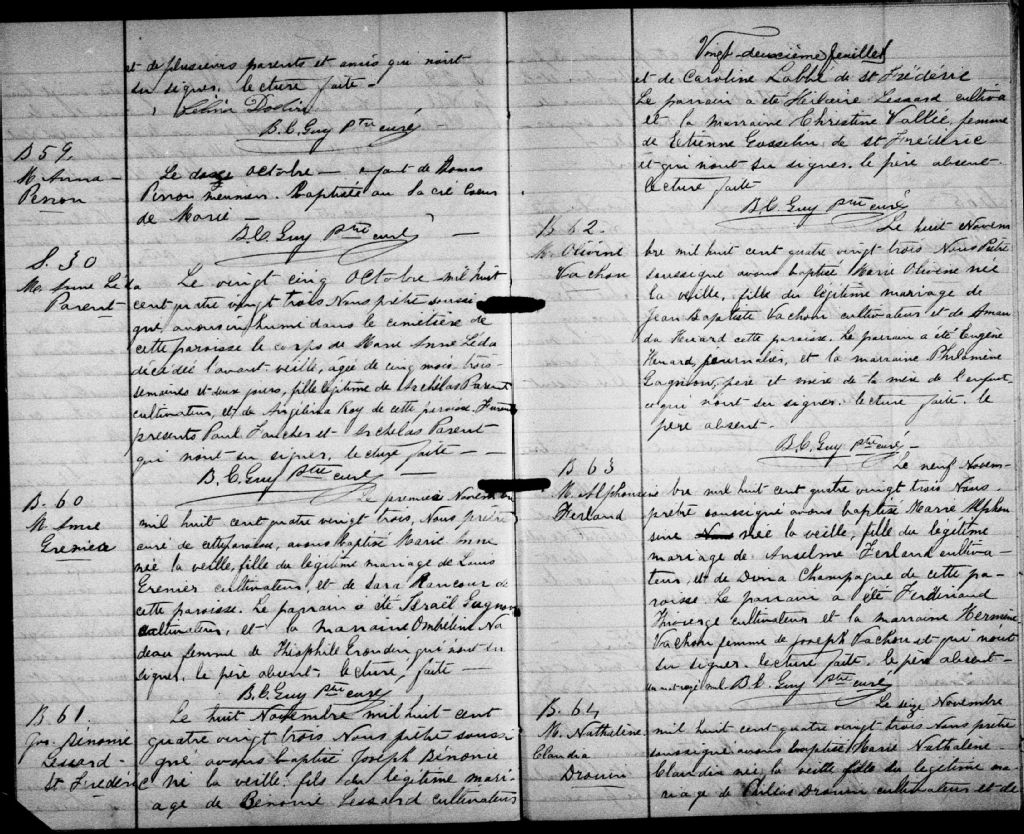 et de plusieurs parents et amis qui n'ont
su signer. lecture faite -
B. C. Guy Ptre curé
B 59.
M. Anna
Perron
Le Octobre - enfant de Thomas
Perron meunier. Baptisée au Sacré Coeur
de Marie -
B. C. Guy Ptre curé -
S. 30
M. Anne Léda
Parent
Le vingt cinq Octobre mil huit
cent quatre vingt trois Nous prêtre soussi
gné avons inhumé dans le cemitière de
cette paroisse le corps de Marie Anne Léda
décédée l'avant veille, agée de cinq mois trois
semaines et deux jours, fille légitime de Archélas Parent
cultivateur, et de Angélina Roy de cette paroisse. Furent
présents Paul Faucher et Archelas Parent
qui n'ont su signer, lecture faite -
B. C. Guy Ptre curé -
B. 60
M. Anne
Grenier
Le premier Novembre
mil huit cent quatre vingt trois, Nous prêtre
curé de cette paroisse, avons baptisé Marie Anne
née la veille, fille du légitime mariage de Louis
Grenier cultivateur, et de Sara Rancour de
cette paroisse. Le parrain a été Israël Gagnon
cultivateur, et la marraine Ombéline Na
deau femme de Théophile qui n'ont su
signer, le père absent. lecture faite -
B. C. Guy Ptre curé
B. 61.
Jos. Bénonie
Lessard
St Frédéric
Le huit Novembre mil huit cent
quatre vingt trois Nous prêtre soussi
gné avons baptisé Joseph Bénonie
né la veille, fils du légitime mari-
age de Benonie Lessard cultivateur
Vingt-deuxième feuillet
et de Caroline Labbé de st Frédéric
Le parrain a été Hilaire Lessard cultiva
et la marraine Christine Vallée, femme
de Etienne Gosselin de st Frédéric
et qui n'ont su signer. le père absent-
lecture faite
B. C. Guy Ptre curé
B 62.
M. Olivine
Vachon
Le huit Novem
bre mil huit cent quatre vingt trois Nous Prêtre
soussigné avons baptisé Marie Olivine née
la veille, fille du légitime mariage de
Jean Baptiste Vachon cultivateur et de Aman
da de cette paroisse. Le parrain a été Eugène
journalier, et la marraine Philomène
Gagnon, père et mère de la mère de l'enfant
et qui n'ont su signer. lecture faite. le
père absent.
B. C. Guy Ptre curé -
B 63
M. Alphonsine
Ferland
Le neuf Novem-
bre mil huit cent quatre vingt trois Nous
prêtre soussigné avons baptisé Marie Alphon
sine née la veille, fille du légitime
mariage de Anselme Ferland cultiva-
teur, et de Dina Champagne de cette pa-
roisse. Le parrain a été Ferdinand
Thivierge cultivateur et la marraine Hermine
Vachon femme de Joseph Vachon et qui n'ont
su signer. lecture faite. le père absent-
un mot rayé nul B. C. Guy Ptre curé
B. 64
M. Nathaline
Claudia
Drouin
Le seize Novembre
mil huit cent quatre vingt trois Nous prêtre
soussigné avons baptisé Marie Nathaline
Claudia née la veille fille du légitime ma-
riage de Drouin cultivateur et de